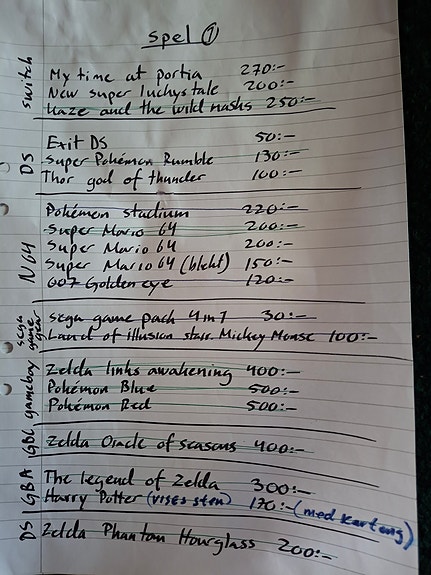 spel 1
switch
My time at portia 270:-
New super luckys tale 200:-
Kaze and the wild masks 250:-
DS
Exit DS 50:-
Super Pokémon Rumble 130:-
Thor god of thunder 100:-
N64
Pokémon stadium 220:-
Super Mario 64 200:-
Super Mario 64 200:-
Super Mario 64 (blekt) 150:-
007 Goldeneye 120:-
sega game gear
sega game pack 4 in 1 30:-
Land of illusion starr. Mickey Mouse 100:-
gameboy
Zelda links awakening 400:-
Pokémon Blue 500:-
Pokémon Red 500:-
GBC
Zelda Oracle of seasons 400:-
GBA
The legend of Zelda 300:-
Harry Potter (vises sten) 170:- (med kartong)
DS
Zelda Phantom Hourglass 200:-